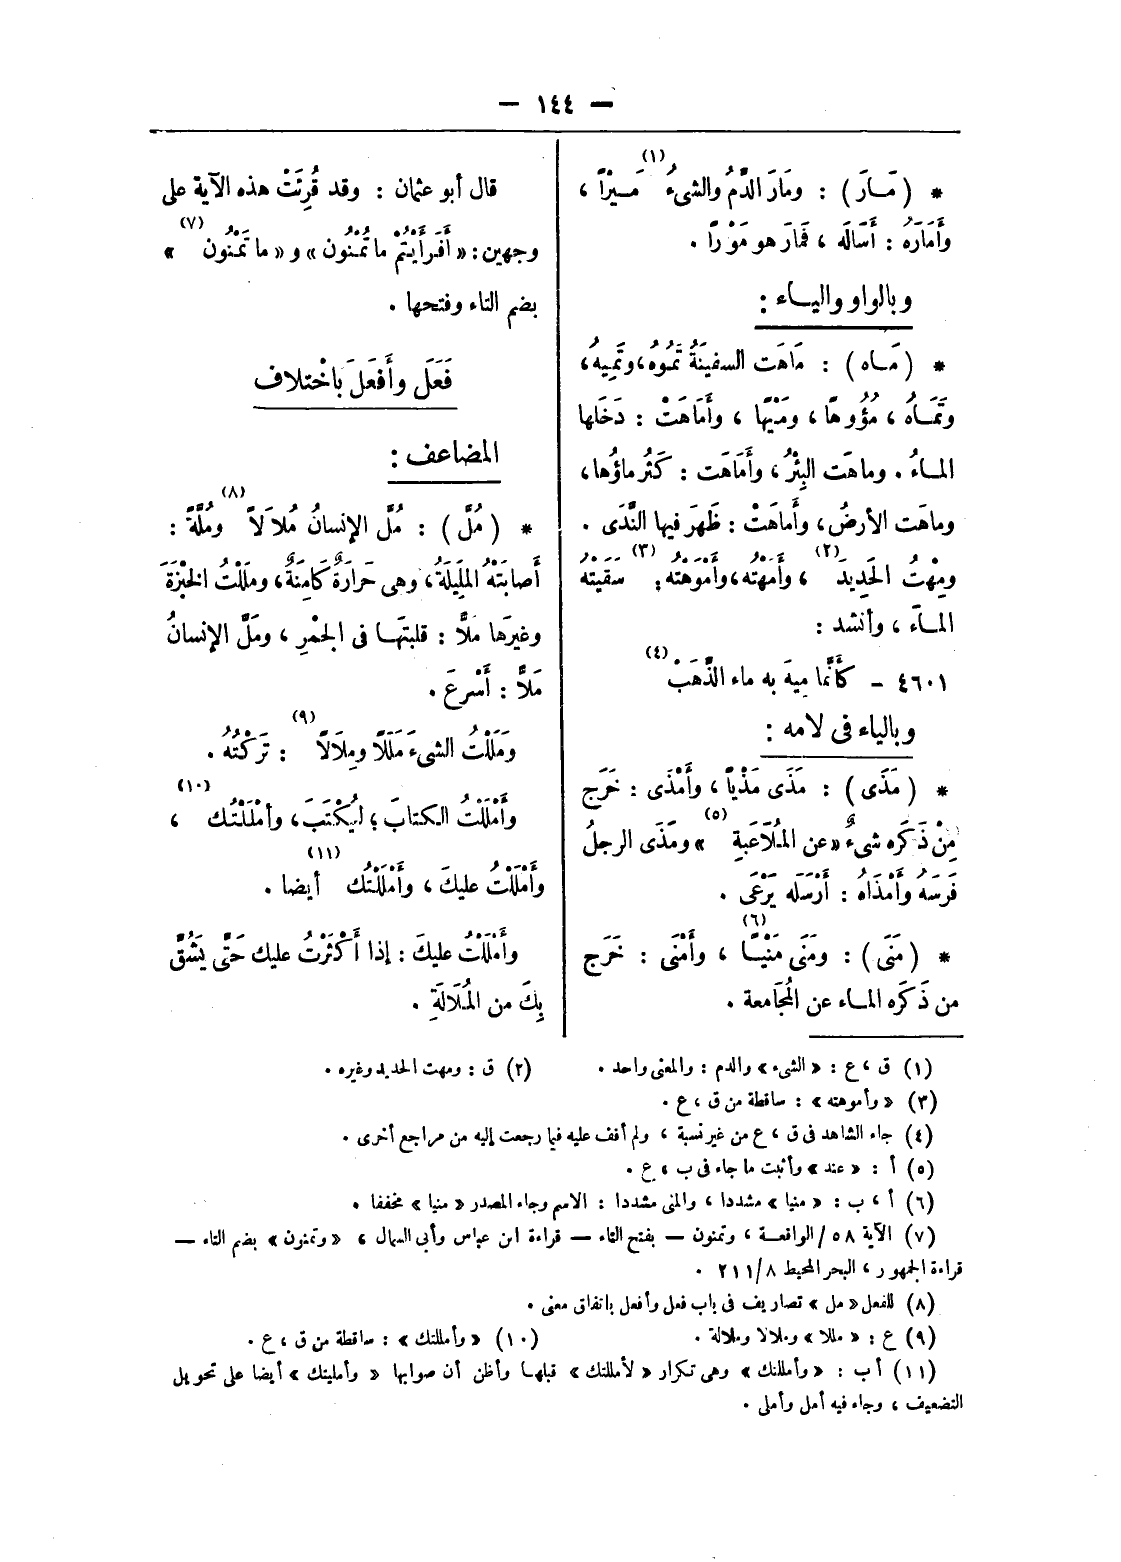 — ١٤٤ —
* ( مَـارَ ) : ومَارَ الدَّمُ والشىءُ (١) مَـيْرًا ،
وأَمَارَهُ : أَسَالَه ، فَمَارَ هو مَوْرًا .
وبالواو واليـاء :
* ( مَـاه ) : مَاهَت السفينَةُ تَمُوهُ، وتَمِيهُ،
وتَمَـاهُ ، مُؤُوهًا ، ومَيْهًا ، وأَمَاهَتْ : دَخَلها
المـاءُ . وماهَت البِئْرُ ، وأَمَاهَت : كَثُر ماؤُها ،
وماهَت الأرضُ، وأماهَتْ : ظَهَر فيها النَّدَى .
ومِهْتُ الحَدِيدَ (٢) ، وأَمَهْتُه، وأَمْوَهْتُه (٣): سَقَيْتُه
المـاءَ ، وأنشد :
٤٦٠١ – كَأَنَّما مِيهَ به ماء الذَّهَبْ (٤)
وبالياء فى لامه :
* ( مَذَى ) : مَذَى مَذْيًا ، وأَمْذَى : خَرَج
مِنْ ذَكَره شىءٌ «عن المُلاَعَبةِ (٥)» ومَذَى الرجلُ
فَرَسَهُ وأَمْذَاه : أَرْسَلَه يَرْعَى .
* ( مَنَى ) : ومَنَى مَنْيًـا (٦) ، وأَمْنَى : خَرَج
من ذَكَره المـاء عن المُجَامعة .
قال أبو عثمان : وقد قُرِئَتْ هذه الآية على
وجهين : « أَفَرَأَيتُمْ ما تُمْنُون » و « ما تَمْنُون (٧) »
بضم التاء وفتحها .
فَعَلَ وأَفعَلَ بَاخْتلاف
المضاعف :
* ( مُلَّ ) : مُلَّ الإنسانُ مُلاَلاً (٨) ومُلَّةً :
أصابَتْهُ المَلِيلَةُ، وهى حَرَارَةٌ كَامِنَةٌ، وملَلْتُ الخبْزَةَ
وغيرَها مَلاًّ : قلبتَهـا فى الجمْرِ ، ومَلَّ الإنسانُ
مَلاًّ : أَسْرعَ .
ومَلَلْتُ الشىءَ مَلَلًا ومِلَالًا (٩) : تَرَكْتُهُ .
وأَمْلَلْتُ الكتابَ ؛ ليُكْتَبَ ، وأمْلَلْتُـك (١٠) ،
وأَمْلَلْتُ عليكَ ، وأَمْلَلْتك (١١) أيضا .
وأَمْلَلْتُ عليكَ : إذا أَكْثَرْتُ عليك حَتَّى يَشُقَّ
بِكَ من المُلَالَةِ .
(١) ق ، ع : « الشىء » والدم : والمعنى واحد . (٢) ق : ومهت الحديد وغيره .
(٣) « وأموهته » : ساقطة من ق ، ع .
(٤) جاء الشاهد فى ق ، ع من غير نسبة ، ولم أقف عليه فيما رجعت إليه من مراجع أخرى .
(٥) أ : « عند » وأثبت ما جاء فى ب ، ع .
(٦) أ ، ب : « منيا » مشددا ، والمنى مشددا : الاسم وجاء المصدر « منيا » مخففا .
(٧) الآية ٥٨ / الواقعـة ، وتمنون — بفتح التاء — قراءة ابن عباس وأبى السمال ، « وتمنون » بضم التاء —
قراءة الجمهور ، البحر المحيط ٨/٢١١ .
(٨) للفعل « مل » تصاريف فى باب فعل وأفعل باتفاق معنى .
(٩) ع : « مللا » وملالا وملالة . (١٠) « وأمللتك » : ساقطة من ق ، ع .
(١١) أ ب : « وأمللتك » وهى تكرار « لأمللتك » قبلهـا وأظن أن صوابها « وأمليتك » أيضا على تحويل
التضعيف ، وجاء فيه أمل وأملى .